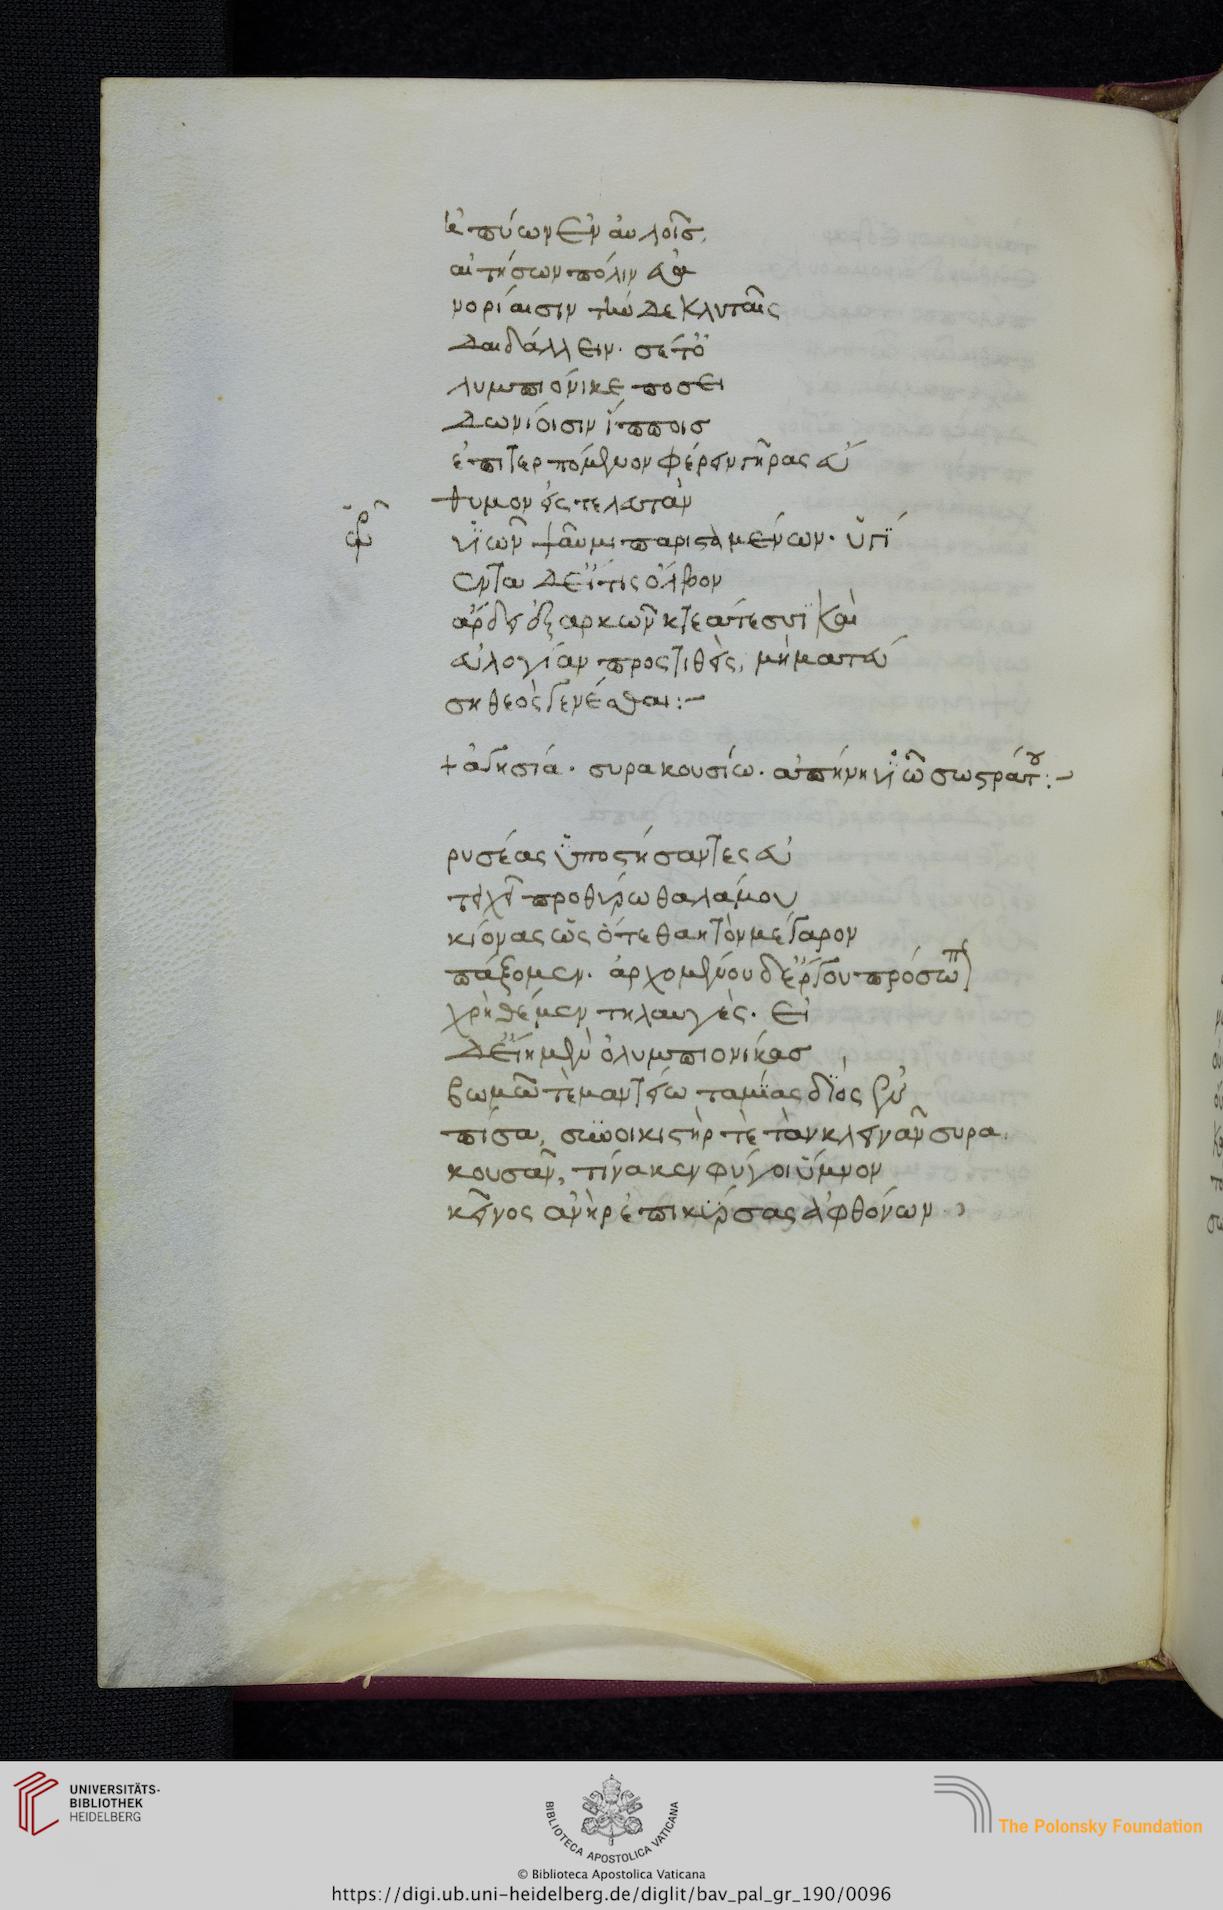 ἠπύων ἐν αὐλοῖς,
αἰτήσων πόλιν εὐα
νορίαισιν τήν δε κλυταῖς
δαιδάλλειν· σέ τ' ὀ
λυμπιόνικε ποσει
δωνίοισιν ἵπποις
ἐπιτερπόμενον φέρειν γῆρας εὔ
θυμον ἐς τελευτὰν
υἱῶν ψαῦμι παρισταμένων· ὑγί
εντα δ' εἴ τις ὄλβον
ἄρδει ἐξαρκῶν κτεάτεσσι καὶ
εὐλογίαν προστιθεὶς, μὴ ματεύ
ση θεὸς γενέσθαι:-
+ ἁγησία· συρακουσίω· ἀπήνη υἱῶ σωστράτου:-
ρυσέας ὑποστήσαντες εὐ
τειχεῖ προθύρω θαλάμου
κίονας ὡς ὅτε θαητὸν μέγαρον
πάξομεν· ἀρχομένου δ' ἔργου πρόσωπον
χρὴ θέμεν τηλαυγὲς· εἰ
δ' εἴη μὲν ὀλυμπιονίκας
βωμῶ τὲ μαντείω ταμίας διὸς ἐν
πίσα, συνοικιστήρ τὲ τᾶν κλεινᾶν συρα
κουσᾶν, τίνα κεν φύγοι ὕμνον
κεῖνος ἀνὴρ ἐπικύρσας ἀφθόνων
UNIVERSITÄTS-
BIBLIOTHEK
HEIDELBERG
BIBLIOTECA APOSTOLICA VATICANA
The Polonsky Foundation
© Biblioteca Apostolica Vaticana
https://digi.ub.uni-heidelberg.de/diglit/bav_pal_gr_190/0096